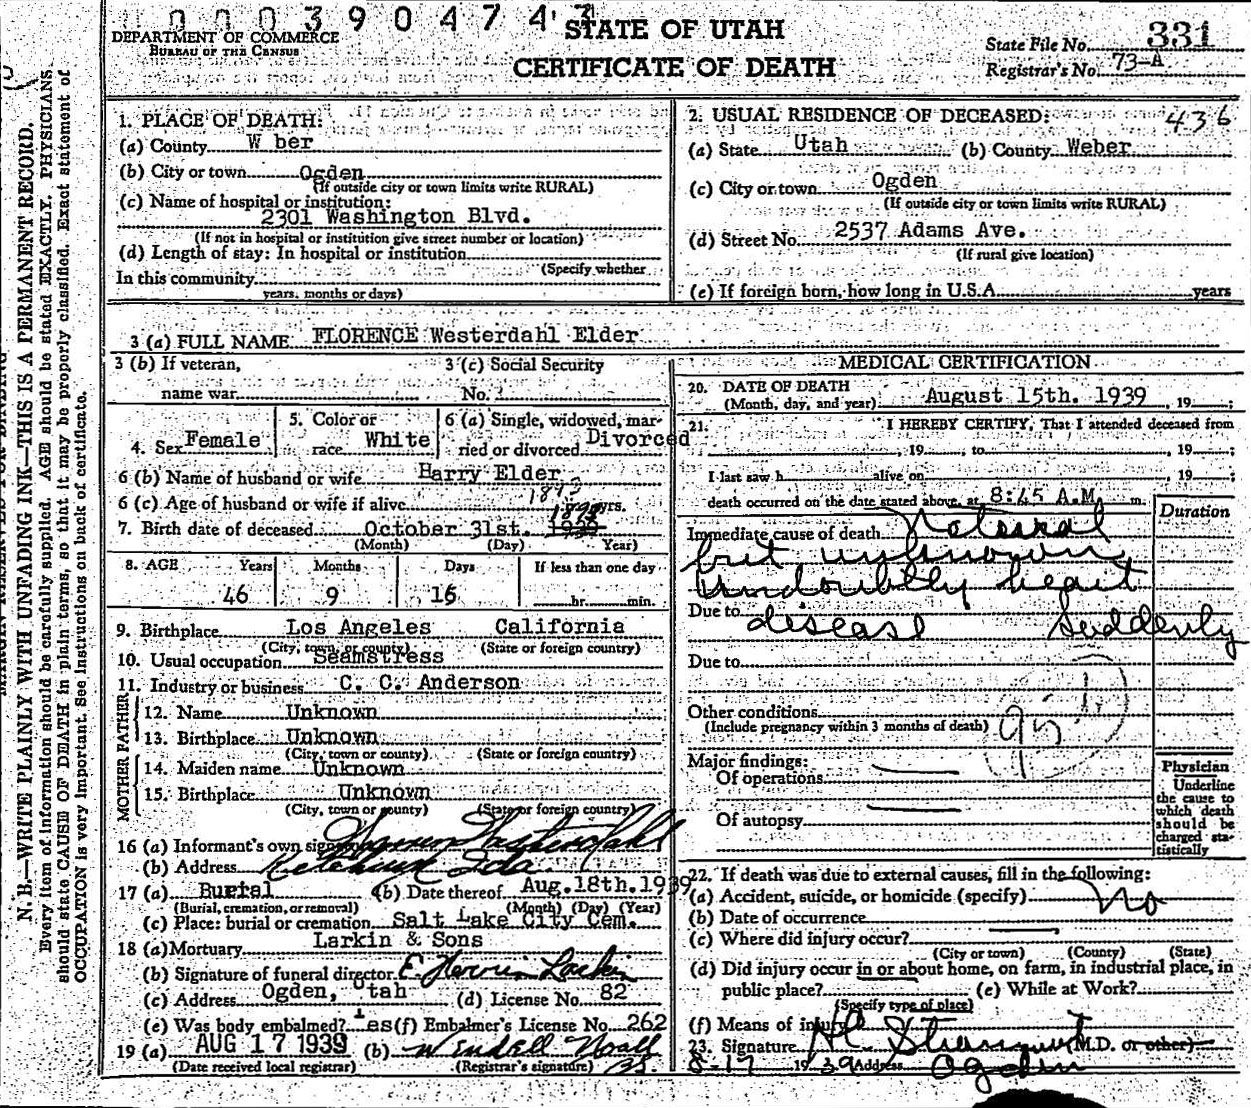 0003904743
STATE OF UTAH
CERTIFICATE OF DEATH
DEPARTMENT OF COMMERCE
BUREAU OF THE CENSUS
State File No. 331
Registrar's No. 73-A
N. B.—WRITE PLAINLY WITH UNFADING INK—THIS IS A PERMANENT RECORD.
Every item of information should be carefully supplied. AGE should be stated EXACTLY. PHYSICIANS
should state CAUSE OF DEATH in plain terms, so that it may be properly classified. Exact statement of
OCCUPATION is very important. See instructions on back of certificate.
1. PLACE OF DEATH:
(a) County W ber
(b) City or town Ogden
(If outside city or town limits write RURAL)
(c) Name of hospital or institution:
2301 Washington Blvd.
(If not in hospital or institution give street number or location)
(d) Length of stay: In hospital or institution
(Specify whether
In this community
years, months or days)
2. USUAL RESIDENCE OF DECEASED: 436
(a) State Utah (b) County Weber
(c) City or town Ogden
(If outside city or town limits write RURAL)
(d) Street No. 2537 Adams Ave.
(If rural give location)
(e) If foreign born, how long in U.S.A. years
3 (a) FULL NAME FLORENCE Westerdahl Elder
3 (b) If veteran,
name war
3 (c) Social Security
No.
4. Sex Female
5. Color or
race White
6 (a) Single, widowed, mar-
ried or divorced Divorced
6 (b) Name of husband or wife Harry Elder
6 (c) Age of husband or wife if alive yrs.
1893
7. Birth date of deceased October 31st.
(Month) (Day) Year)
8. AGE Years Months Days If less than one day
46 9 16 hr. min.
9. Birthplace Los Angeles California
(City, town, or county) (State or foreign country)
10. Usual occupation Seamstress
11. Industry or business C. C. Anderson
FATHER
12. Name Unknown
13. Birthplace Unknown
(City, town or county) (State or foreign country)
MOTHER
14. Maiden name Unknown
15. Birthplace Unknown
(City, town or county) (State or foreign country)
16 (a) Informant's own signature Westerdahl
(b) Address Ketchum Ida.
17 (a) Burial (b) Date thereof Aug.18th.1939
(Burial, cremation, or removal) (Month) (Day) (Year)
(c) Place: burial or cremation Salt Lake City Cem.
18 (a) Mortuary Larkin & Sons
(b) Signature of funeral director E. Larkin
(c) Address Ogden, Utah (d) License No. 82
(e) Was body embalmed? Yes (f) Embalmer's License No. 262
19 (a) AUG 17 1939 (b) Wendell Noall
(Date received local registrar) (Registrar's signature)
MEDICAL CERTIFICATION
20. DATE OF DEATH
(Month, day, and year) August 15th. 1939, 19 ;
21. I HEREBY CERTIFY, That I attended deceased from
, 19 , to , 19 ;
I last saw h alive on , 19 ;
death occurred on the date stated above, at 8:45 A.M. m.
Duration
Immediate cause of death Natural
but unknown
undoubtly heart
Due to disease Suddenly
Due to
Other conditions
(Include pregnancy within 3 months of death)
Major findings:
Of operations
Of autopsy
Physician
Underline
the cause to
which death
should be
charged sta-
tistically
22. If death was due to external causes, fill in the following:
(a) Accident, suicide, or homicide (specify) No
(b) Date of occurrence
(c) Where did injury occur?
(City or town) (County) (State)
(d) Did injury occur in or about home, on farm, in industrial place, in
public place? (e) While at Work?
(Specify type of place)
(f) Means of injury
23. Signature M.D. or other)
8-17 1939 Address Ogden